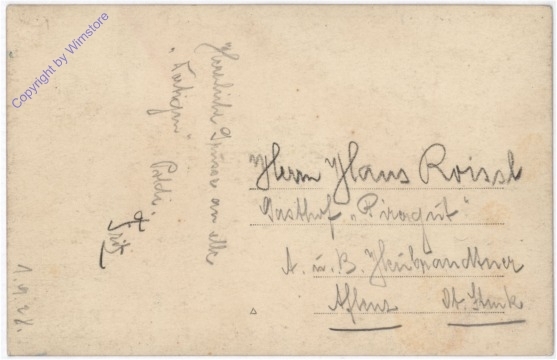 Copyright by Wimstore
Herzliche Grüsse an alle
Poldi.
Fritz
1.9.28.
Herrn Hans Roissl
Gasthof „Piragut“
A. u. B.
Aflenz